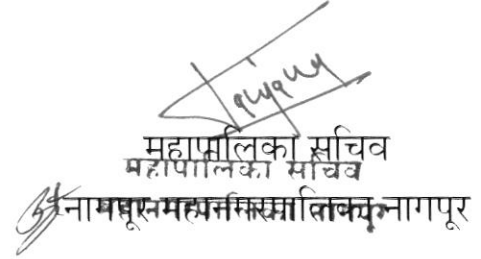 महापालिका सचिव
महापालिका सचिव
नागपूर महानगरपालिका, नागपूर